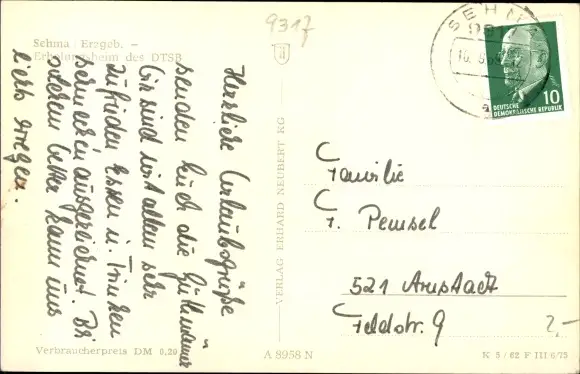 9317
Sehma Erzgeb. –
Erholungsheim des DTSB
Herzliche Urlaubsgrüße
senden Euch die
Wir sind mit allem sehr
zufrieden Essen u. Trinken
ausgezeichnet.
Wetter kann uns
VERLAG ERHARD NEUBERT KG
SEHMA
10
DEUTSCHE
DEMOKRATISCHE REPUBLIK
Familie
F. Pemsel
521 Arnstadt
Feldstr. 9
2,-
Verbraucherpreis DM 0,20
A 8958 N
K 5/62 F III 6/75